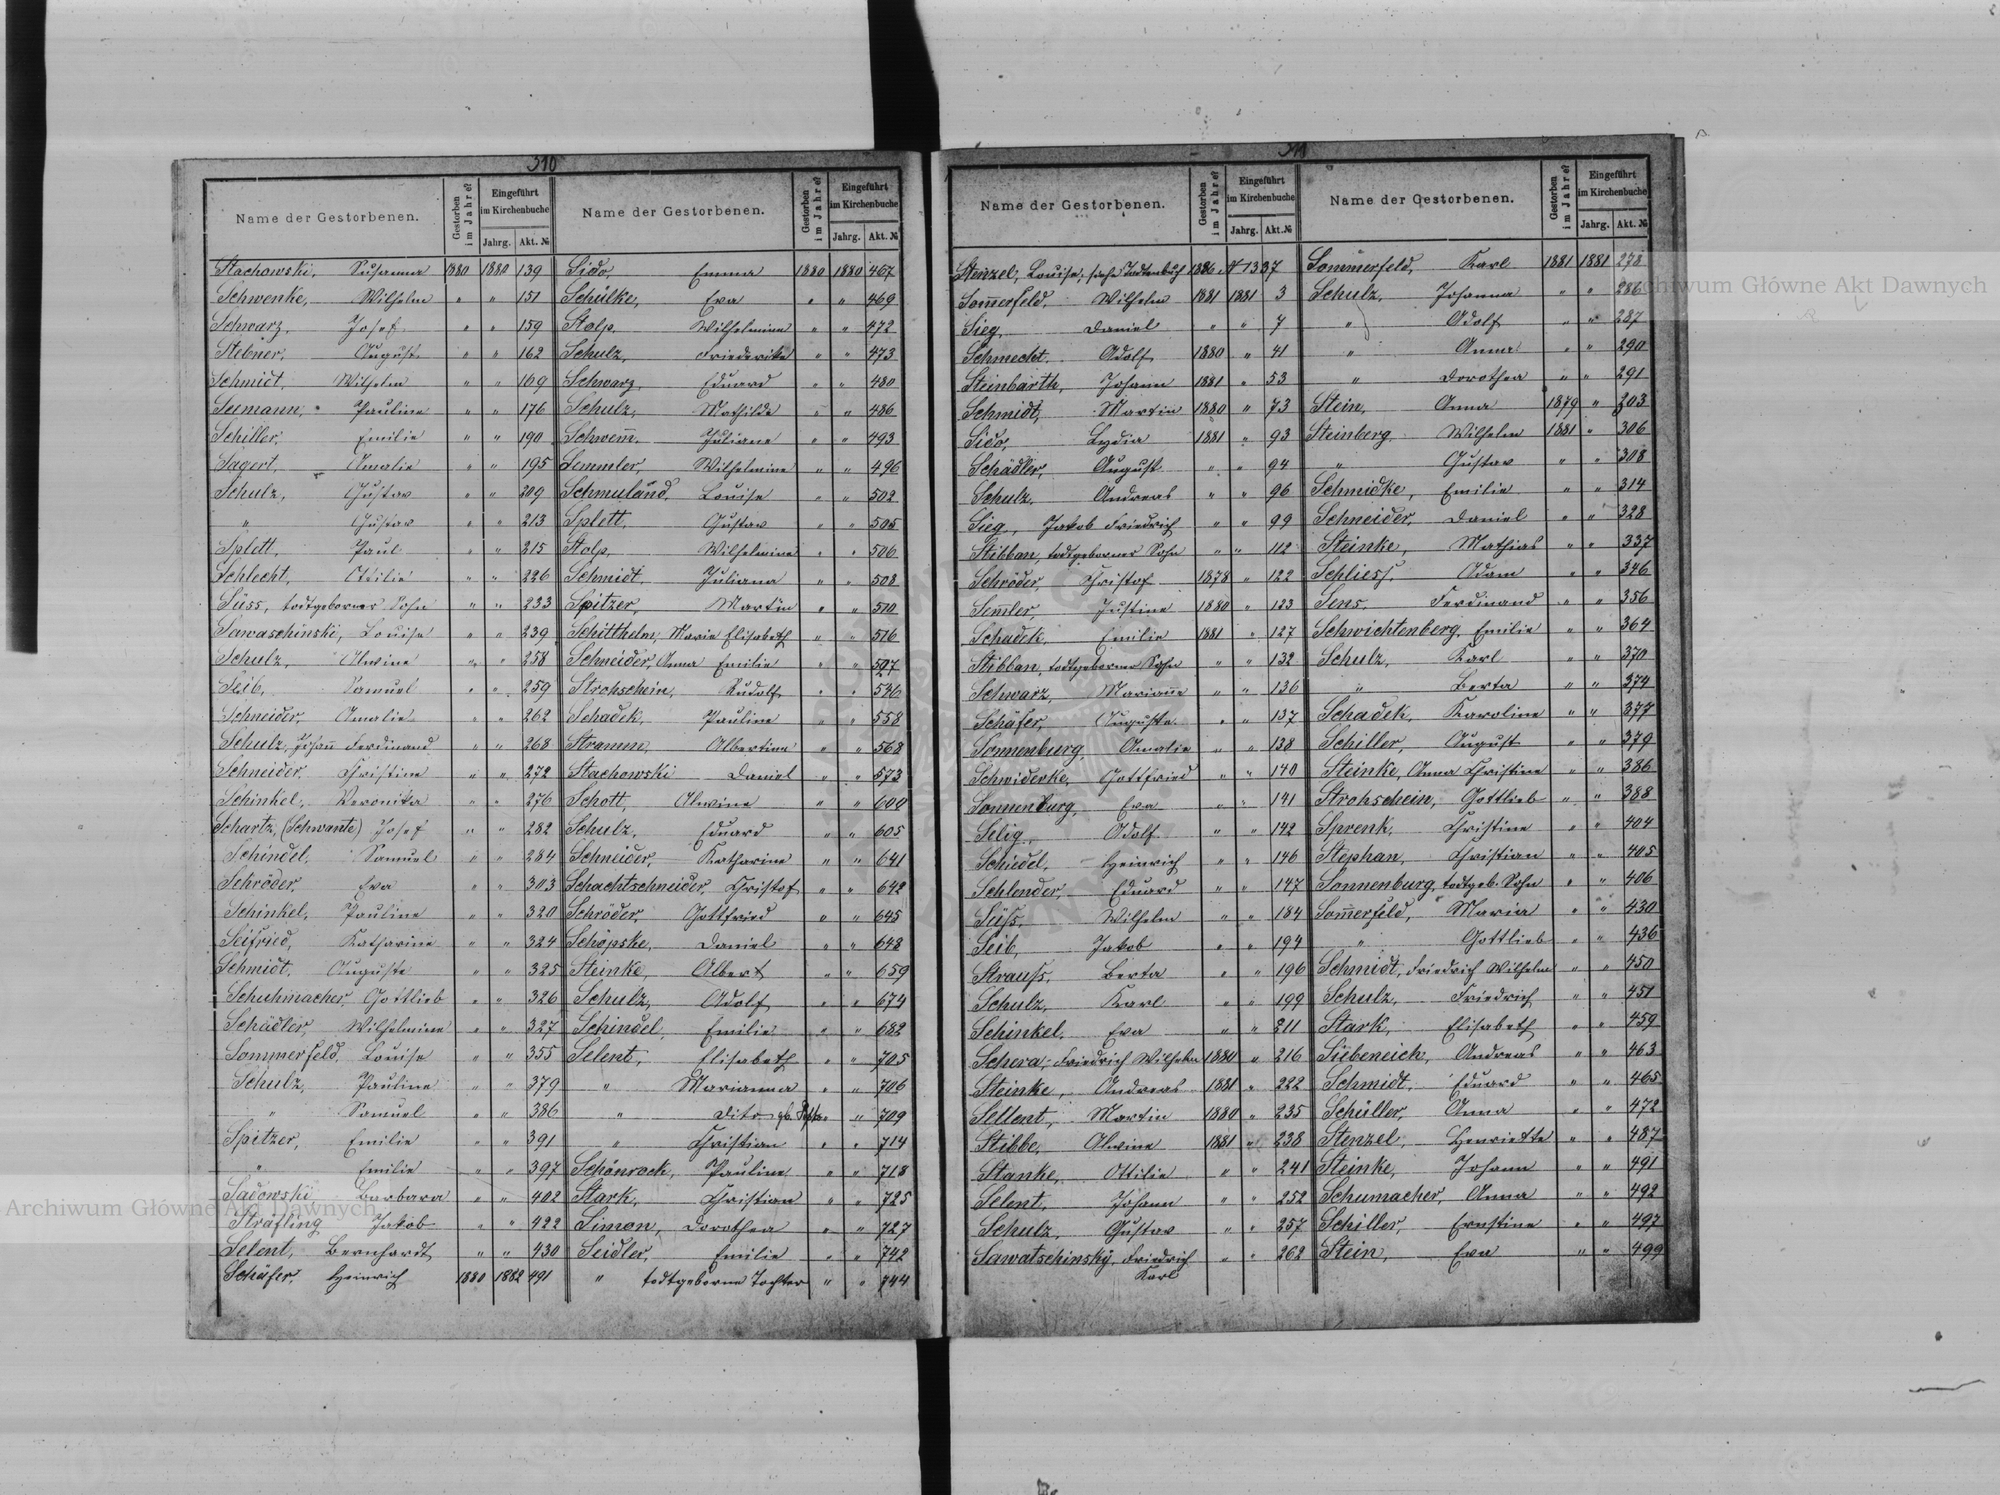 310
Name der Gestorbenen. Gestorben im Jahre? Eingeführt im Kirchenbuche Jahrg. Akt. №
Stachowski, Susanna 1880 1880 139
Schwenke, Wilhelm " " 151
Schwarz, Josef " " 159
Stebner, August " " 162
Schmidt, Wilhelm " " 169
Seemann, Pauline " " 176
Schiller, Emilie " " 190
Sagert, Amalie " " 195
Schulz, Gustav " " 209
" Gustav " " 213
Splett, Paul " " 215
Schlecht, Ottilie " " 226
Süss, todtgeborner Sohn " " 233
Sawaschinski, Louise " " 239
Schulz, Alwine " " 258
Seib, Samuel " " 259
Schneider, Amalie " " 262
Schulz, Johann Ferdinand " " 268
Schneider, Christine " " 272
Schinkel, Veronika " " 276
Schartz, (Schwante) Josef " " 282
Schindel, Samuel " " 284
Schröder, Eva " " 303
Schinkel, Pauline " " 320
Seifried, Katharine " " 324
Schmidt, Auguste " " 325
Schuhmacher, Gottlieb " " 326
Schädler, Wilhelmine " " 327
Sommerfeld, Louise " " 355
Schulz, Pauline " " 379
" Samuel " " 386
Spitzer, Emilie " " 391
" Emilie " " 397
Sadowski, Barbara " " 402
Sträfling Jakob " " 422
Selent, Bernhardt " " 430
Schäfer, Heinrich 1880 1882 491
Name der Gestorbenen. Gestorben im Jahre? Eingeführt im Kirchenbuche Jahrg. Akt. №
Sido, Emma 1880 1880 467
Schülke, Eva " " 469
Stolp, Wilhelmine " " 472
Schulz, Friederike " " 473
Schwarz, Eduard " " 480
Schulz, Mathilde " " 486
Schwem̅, Juliane " " 493
Semmler, Wilhelmine " " 496
Schmuland, Louise " " 502
Splett, Gustav " " 505
Stolp, Wilhelmine " " 506
Schmidt, Juliana " " 508
Spitzer, Martin " " 510
Schitthelm, Marie Elisabeth " " 516
Schneider, Anna Emilie " " 527
Strohschein, Rudolf " " 536
Schadek, Pauline " " 558
Stramm, Albertine " " 568
Stachowski Daniel " " 573
Schott, Alwine " " 600
Schulz, Eduard " " 605
Schneider, Katharine " " 641
Schachtschneider, Christof " " 642
Schröder Gottfried " " 645
Schöpske, Daniel " " 648
Steinke, Albert " " 659
Schulz, Adolf " " 674
Schindel, Emilie " " 682
Selent, Elisabeth " " 705
" Marianna " " 706
" Dito " " 709
" Christian " " 714
Schönrock, Pauline " " 718
Stark, Christian " " 725
Simon, Dorothea " " 727
Seidler, Emilie " " 742
" todtgeborne Tochter " " 744
311
Name der Gestorbenen. Gestorben im Jahre? Eingeführt im Kirchenbuche Jahrg. Akt. №
Stenzel, Louise, siehe Todtenbuch 1886 № 1337
Som̅erfeld, Wilhelm 1881 1881 3
Sieg, Daniel " " 7
Schmecht, Adolf 1880 " 41
Steinbarth, Johann 1881 " 53
Schmidt, Martin 1880 " 73
Sido, Lydia 1881 " 93
Schädler, August " " 94
Schulz, Andreas " " 96
Sieg, Jakob Friedrich " " 99
Stibban, todtgeborner Sohn " " 112
Schröder, Christof 1878 " 122
Sem̅ler, Justine 1880 " 123
Schadek, Emilie 1881 " 127
Stibban, todtgeborner Sohn " " 132
Schwarz, Marianne " " 136
Schäfer, Auguste " " 137
Sonnenburg, Amalie " " 138
Schwiderke, Gottfried " " 140
Sonnenburg, Eva " " 141
Selig, Adolf " " 142
Schiedel, Heinrich " " 146
Schlender, Eduard " " 147
Süss, Wilhelm " " 184
Seib, Jakob " " 194
Strauss, Berta " " 196
Schulz, Karl " " 199
Schinkel, Eva " " 211
Schera, Friedrich Wilhelm 1880 " 216
Steinke, Andreas 1881 " 222
Sellent, Martin 1880 " 235
Stibbe, Alwine 1881 " 238
Stanke, Ottilie " " 241
Selent, Johann " " 252
Schulz, Gustav " " 257
Sawatschinsky, Friedrich Karl " " 262
Name der Gestorbenen. Gestorben im Jahre? Eingeführt im Kirchenbuche Jahrg. Akt. №
Sommerfeld, Karl 1881 1881 278
Schulz, Johanna " " 286
" Adolf " " 287
" Anna " " 290
" Dorothea " " 291
Stein, Anna 1879 " 303
Steinberg Wilhelm 1881 " 306
" Gustav " " 308
Schmidke, Emilie " " 314
Schneider, Daniel " " 328
Steinke, Mathias " " 337
Schliess, Adam " " 346
Sens, Ferdinand " " 356
Schwichtenberg, Emilie " " 364
Schulz, Karl " " 370
" Berta " " 374
Schadek, Karoline " " 377
Schiller, August " " 379
Steinke, Anna Christine " " 386
Strohschein, Gottlieb " " 388
Sprenk, Christine " " 404
Stephan, Christian " " 405
Sonnenburg, todtgeb. Sohn " " 406
Som̅erfeld, Maria " " 430
" Gottlieb " " 436
Schmidt, Friedrich Wilhelm " " 450
Schulz, Friedrich " " 451
Stark, Elisabeth " " 459
Siebeneich, Andreas " " 463
Schmidt, Eduard " " 465
Schüller, Anna " " 472
Stenzel, Henriette " " 487
Steinke, Johann " " 491
Schumacher, Anna " " 492
Schiller, Ernstine " " 497
Stein, Eva " " 499
Archiwum Główne Akt Dawnych
Archiwum Główne Akt Dawnych